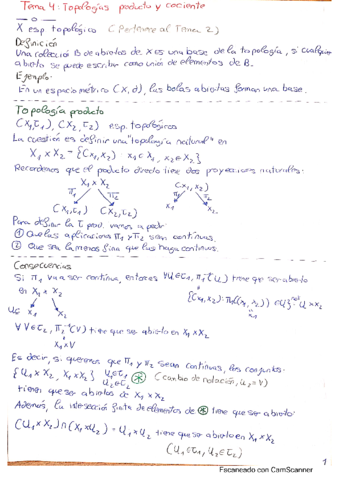 Tema 4: Topologías producto y cociente
X esp. topológico (Pertenece al Tema 2)
Definición
Una colección B de abiertos de X es una base de la topología, si cualquier
abierto se puede escribir como unión de elementos de B.
Ejemplo:
En un espacio métrico (X, d), las bolas abiertas forman una base.
Topología producto
(X₁, τ₁), (X₂, τ₂) esp. topológicos
La cuestión es definir una "topología natural" en
X₁ × X₂ = {(x₁, x₂) x₁ ∈ X₁, x₂ ∈ X₂}
Recordemos que el producto directo tiene dos proyecciones naturales:
X₁ × X₂ (x₁, x₂)
π₁ π₂ π₁ π₂
(X₁, τ₁) (X₂, τ₂) x₁ x₂
Para definir la τ prod. vamos a pedir
① Que las aplicaciones π₁ y π₂ sean continuas.
② Que sea la menos fina que las haga continuas.
Consecuencias
Si π₁ va a ser continua, entonces ∀U ∈ τ₁, π₁⁻¹(U) tiene que ser abierto
en X₁ × X₂ {(x₁, x₂): π₁((x₁, x₂)) ∈ U} = U × X₂
U ⊆ X₁ X₂
∀V ∈ τ₂, π₂⁻¹(V) tiene que ser abierto en X₁ × X₂
X₁ × V
Es decir, si queremos que π₁ y π₂ sean continuas, los conjuntos
{U₁ × X₂, X₁ × U₂} U₁ ∈ τ₁ U₂ ∈ τ₂ ⊛ (cambio de notación, U₂ = V)
tienen que ser abiertos de X₁ × X₂
Además, la intersección finita de elementos de ⊛ tiene que ser abierto:
(U₁ × X₂) ∩ (X₁ × U₂) = U₁ × U₂ tiene que ser abierto en X₁ × X₂
(U₁ ∈ τ₁, U₂ ∈ τ₂)
1
Escaneado con CamScanner